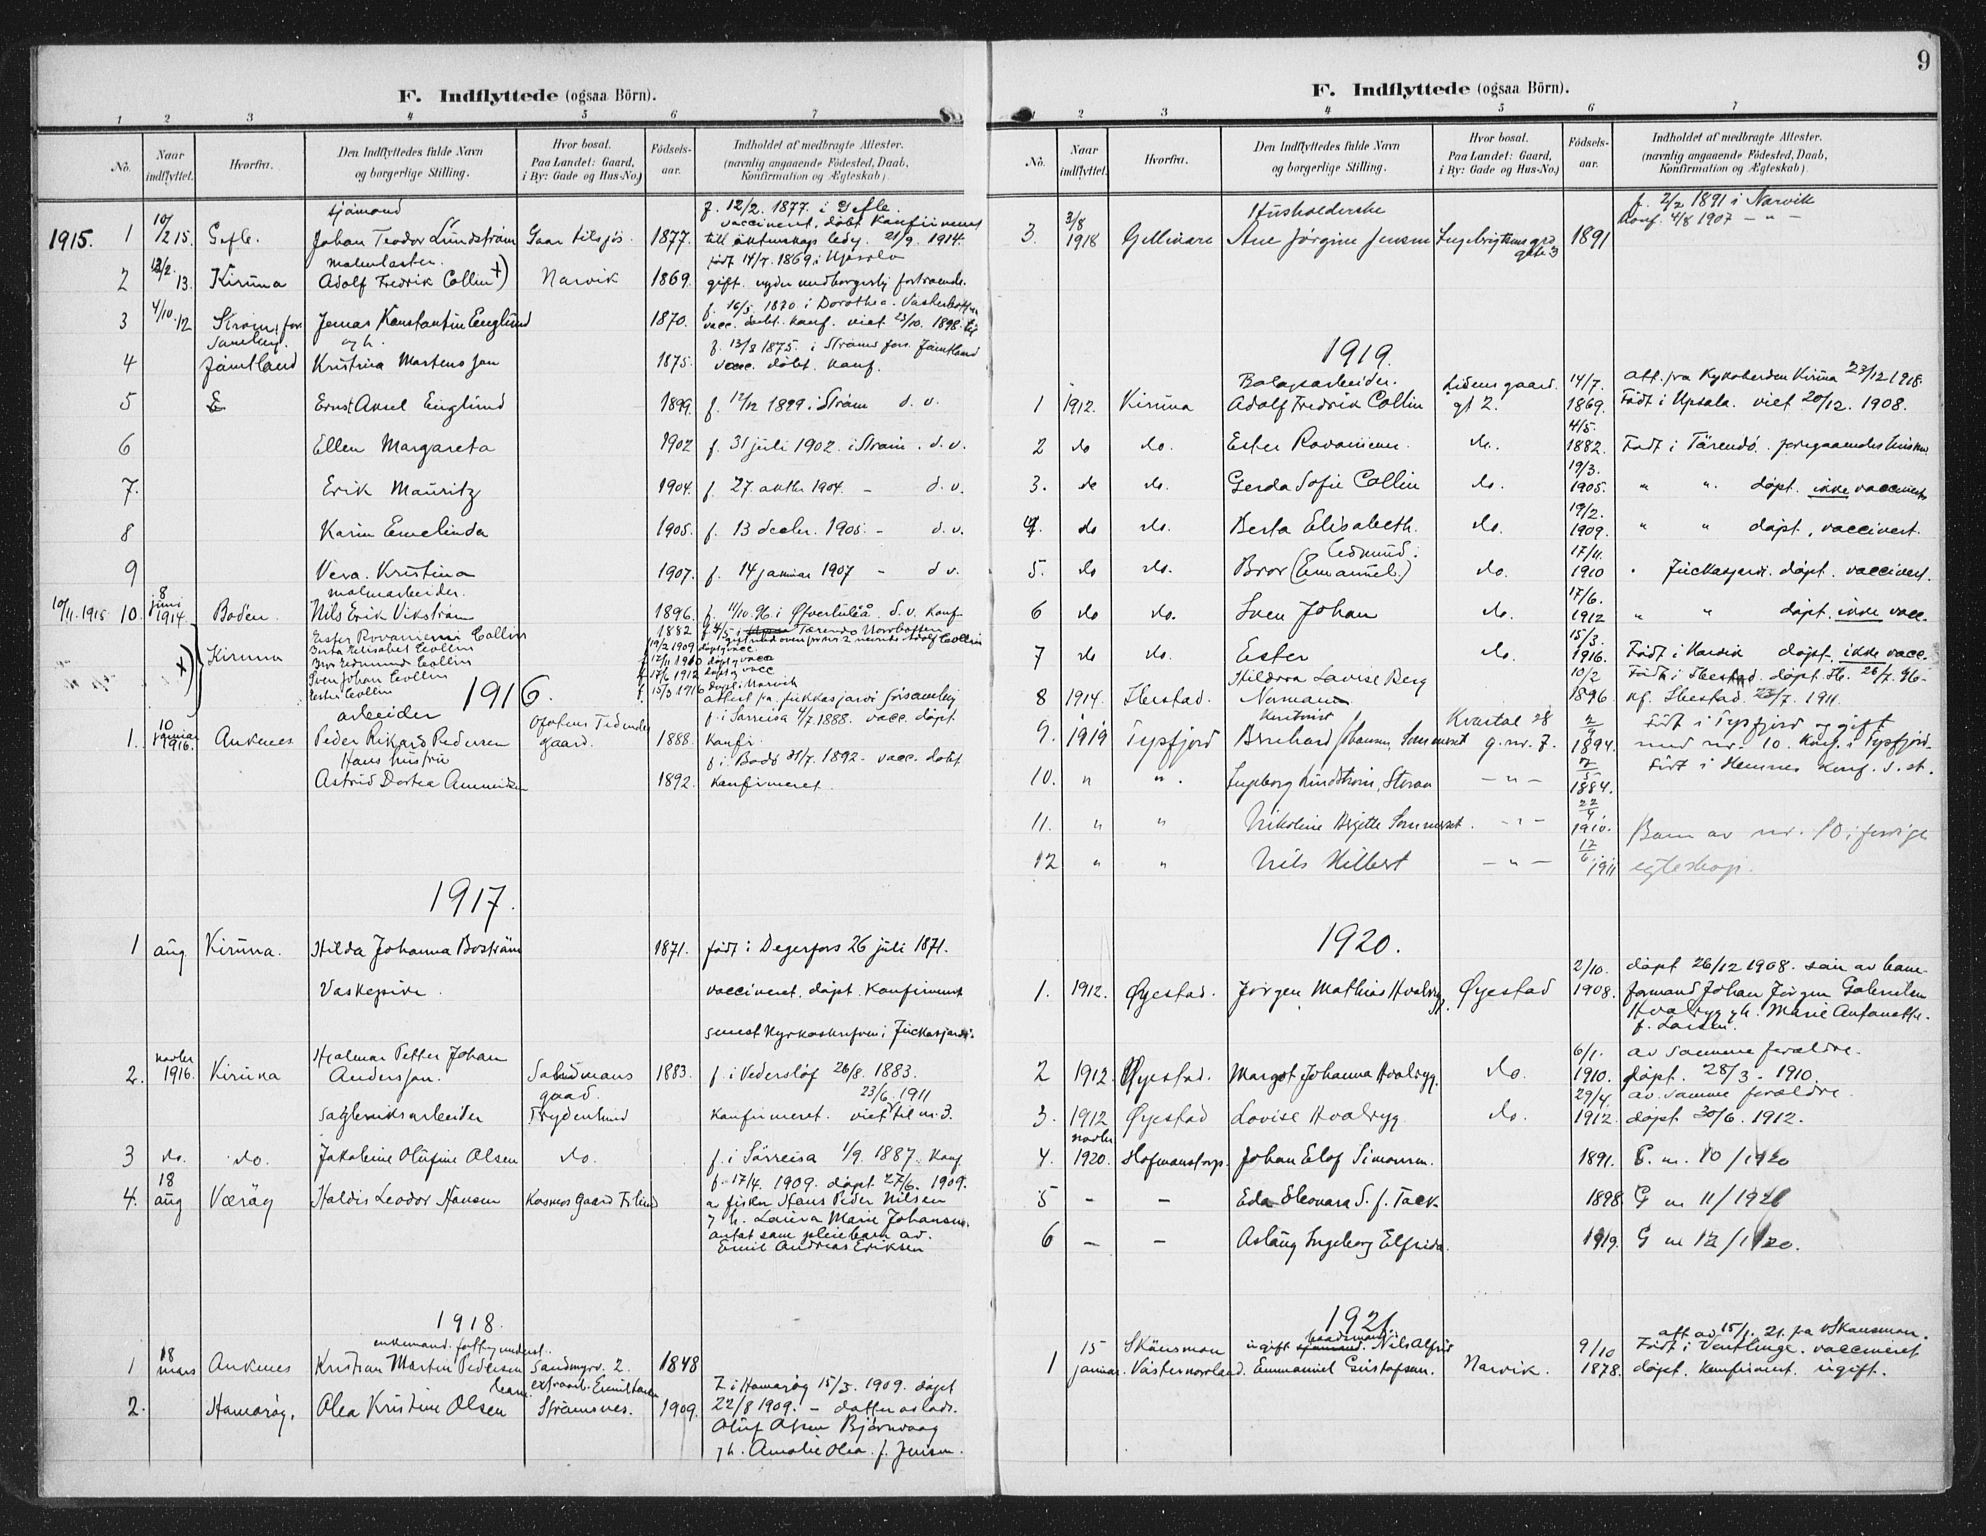 F. Indflyttede (ogsaa Börn).
1 2 3 4 5 6 7
No.
Naar indflyttet.
Hvorfra.
Den Indflyttedes fulde Navn og borgerlige Stilling.
Hvor bosat. Paa Landet: Gaard, i By: Gade og Hus-No.)
Födsels-aar.
Indholdet af medbragte Attester. (navnlig angaaende Födested, Daab, Konfirmation og Ægteskab).
sjömand f. 12/2. 1877. i Gefle.
vaccinert, döbt konfirmeret
1915. 1 10/12 15. Gefle. Johan Teodor Lundström 1877. till äktenskap ledig. 21/9. 1914.
malmlaster. født 14/7. 1869 i Upsala
2 12/2. 13. Kiruna Adolf Fredrik Collin x) Narvik 1869. gift.
f. 16/5 1870 i Dorothea.
3 4/10. 12 Ström, for Jonas Konstantin Englund 1870. vacc. døbt. konf. viet 23/10. 1898.
samling. og h. f. 13/8 1875. i Ströms fors. Jämtland
4 Jämtland Kristina Martensson 1875. vacc. døbt. konf.
5 Ernst Aksel Englund 1899. f. 12/12 1899 i Ström d. v.
6 Ellen Margareta 1902 f. 31 juli 1902. i Ström. d. v.
7. Erik Mauritz 1904. f. 27. oktbr 1904. - d. v.
8 Karin Emelinda 1905. f. 13 decbr. 1905. - d. v.
9 Vera. Kristina 1907. f. 14 januar 1907 - d v.
malmarbeider.
10/11. 1915 10. 8 juni 1914 Boden. Nils Erik Vikström 1896. f. 11/10. 96. i Øfverluleå. d. v. konf
Ester Rovaniemi Collin 1882 f. 4/5 i Tärendö Norrbotten
Berta Elisabet Collin 19/2 1909 døpt vacc.
x) Kiruna Bror Edmund Collin f. 17/11 1910 døpt vacc
Sven Johan Collin f. 17/6 1912 døpt vacc
Ester Collin f. 15/3 1916 døpt i Narvik
1916. attest fra Jukkasjärvi församling
arbeider Ofotens Tidende f. i Sørreisa 4/7. 1888. vacc. døpt.
1. 10 januar 1916. Ankenes Peder Rikard Pedersen gaard. 1888. konfr.
Hans hustru f. i Bodø 31/7. 1892. vacc. døbt
Astrid Dortea 1892. konfirmeret.
1917.
1 aug Kiruna. Hilda Johanna Boström 1871. født i Degerfors 26 juli 1871.
Vaskepike. vaccineret, døpt. konfirmert
senest kyrkoskrifven i Juckasjärvi.
novbr Hjalmar Petter Johan
2. 1916. Kiruna Andersson. 1883. f. i Vederslöf 26/8. 1883.
gaard. 23/6. 1911
Frydenlund konfirmeret. viet til nr. 3.
3 do. do. Jakobine Olufine Olsen do. f. i Sørreisa 1/9. 1887. konf
18 f. 17/4. 1909. døpt 27/6. 1909.
4. aug Værøy Haldis Leodor Hansen 
av fisker Hans Peder Nilsen
og h. Laura Marie Johansen.
antat som pleiebarn av.
Emil Andreas Eriksen
1918.
enkemand.
1 18 mars Ankenes Kristian Martin Pedersen Sandmyrv. 2. 1848
barn. f. i Hamarøy 15/5. 1909. døpt
2. Hamarøy. Olea Kristine Olsen Strømsnes. 1909. 22/8 1909. - datter av
Oluf Olsen Bjørnvaag
og h. Amalie Olea. f. Jensen.
9
F. Indflyttede (ogsaa Börn).
1 2 3 4 5 6 7
No.
Naar indflyttet.
Hvorfra.
Den Indflyttedes fulde Navn og borgerlige Stilling.
Hvor bosat. Paa Landet: Gaard, i By: Gade og Hus-No.)
Födsels-aar.
Indholdet af medbragte Attester. (navnlig angaaende Födested, Daab, Konfirmation og Ægteskab).
Husholderske f. 2/2 1891 i Narvik
3. 3/8 1918 Gellivare Ane Jørgine Jensen 1891 konf. 4/8 1907 - " -
1919.
Bolagsarbeider. 14/7. att. fra Kyrkoherden Kiruna 23/12 1918.
1 1912. Kiruna Adolf Fredrik Collin gt 2. 1869. Født i Upsala. viet 20/12. 1908.
2 do do. Ester Rovaniemi. do. 4/5. 1882. Født i Tärendö. foregaaendes hustru
3. do do. Gerda Sofie Collin do. 19/3. 1905. " " døpt. ikke vaccinert
4. do do. Berta Elisabeth. do. 19/2. 1909. " " døpt, vaccinert.
Edmund.
5. do do. Bror (Emanuel.) do. 17/11. 1910 " Juckasjärvi. døpt. vaccinert.
6 do do. Sven Johan do. 17/6. 1912 " " døpt. ikke vacc.
7 do do. Ester do. 15/3. 1916. Født i Narvik døpt. ikke vacc.
Hildora Lovise Berg 10/2 Født i Ibestad. døpt 26/7. 96.
8 1914. Ibestad. Normann 1896. kf. Ibestad. 23/7. 1911.
Kvartal 28 Født i Tysfjord og gift
9. 1919 Tysfjord Bernhard Johansen Sommerset g. nr. 7. 1894. med nr. 10. konf. i Tysfjord
10. " ". Ingeborg Lindstrøm, Storaa - " - 7/5 1884. Født i Hemnes konf. s. st.
11. " " Nikoline Birgitte Sommerset. - " - 22/4 1910. Barn av nr. 10 i forrige
12 " " Nils Hilbert - " - 12/6. 1911 egteskap.
1920.
2/10. døpt 26/12 1908. søn av bane-
1. 1912. Øyestad. Jørgen Mathias Hvalryg Øyestad 1908. formand Johan Jørgen Gabrielsen
Hvalryg og h. Marie Antonette.
f. Larsen.
6/1. av samme forældre.
2 1912. Øyestad. Margot Johanna Hvalryg. do. 1910. døpt. 28/3 - 1910.
29/4. av samme forældre.
3. 1912 Øyestad Lovise Hvalryg do. 1912. døpt 30/6. 1912.
novbr
4. 1920. Hofmanstorp. Johan Elof Simonsen. 1891. G. nr. 10/1920
5 - - Eda Eleonara S. f. Tack 1898 G nr 11/1920
6 - - Aslaug Ingeborg Elfrida. 1919. G nr 12/1920.
1921.
15 Skönsmon ugift baadsmand Nils Alfrid 9/10 att av 15/1. 21. fra Skönsmon.
1 januar. Västernorrland. Emmanuel Gustafsen. Narvik. 1878. Født i Ventlinge. vaccineret
døpt. konfirmert. ugift.